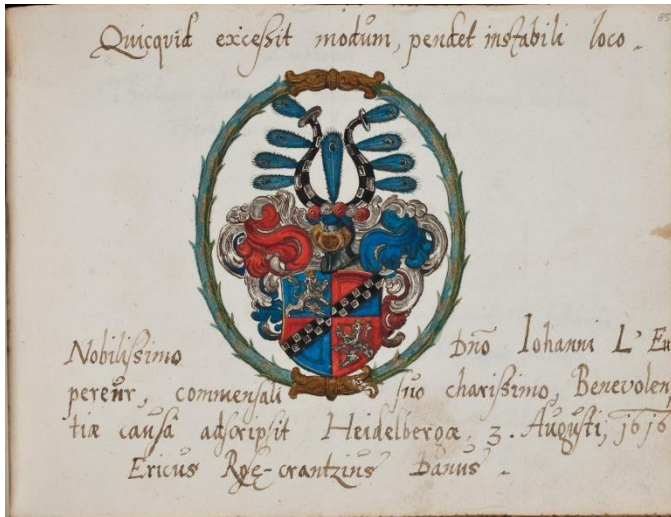 85
Quicquid excessit modum, pendet instabili loco.
Nobilissimo Dño Iohanni L'Em
pereur, commensali suo charissimo, Benevolen,
tiæ causâ adscripsit Heidelbergæ, 3. Augusti, 1616
Ericus Danus.